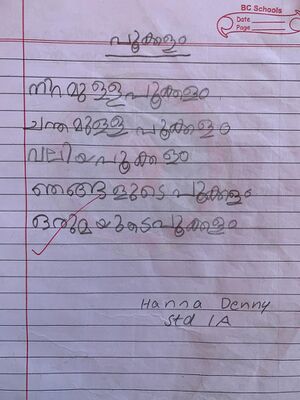 BC Schools
Date
Page
പൂക്കളം
നിറമുള്ള പൂക്കളം
ചന്തമുള്ള പൂക്കളം
വലിയ പൂക്കളം
ഞങ്ങളുടെ പൂക്കളം
ഒരുമയുടെ പൂക്കളം
Hanna Denny
Std 1A